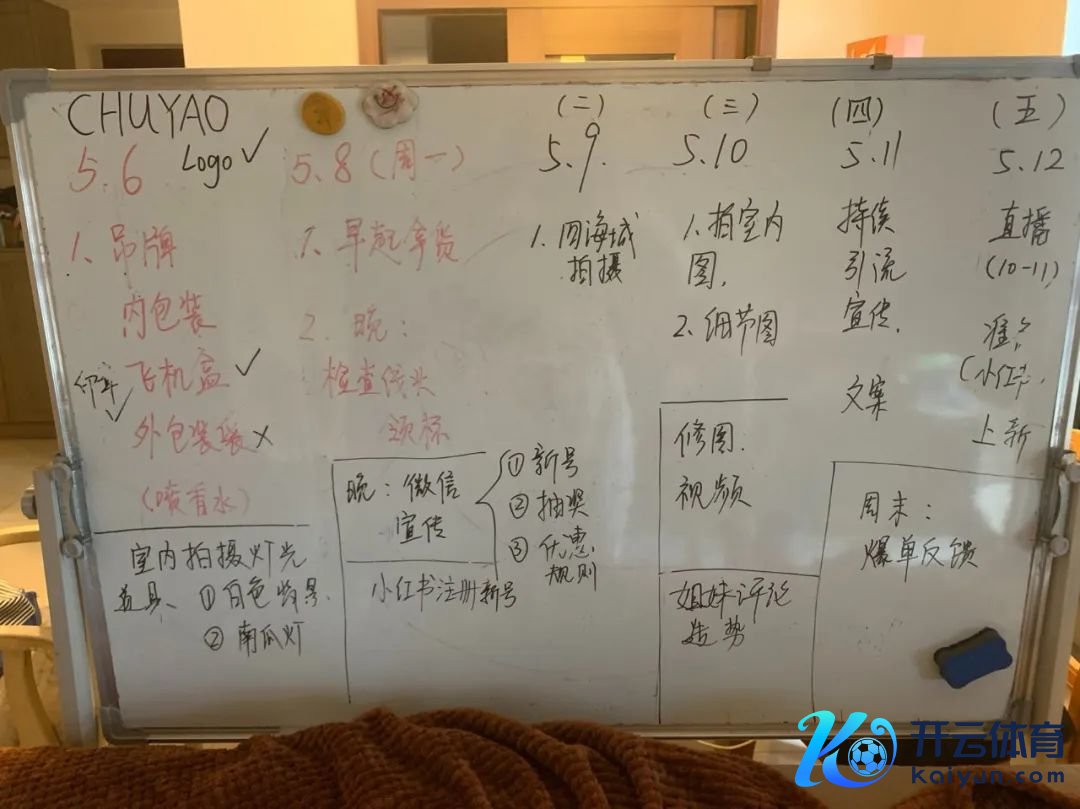 CHUYAO
5.6 Logo ✓
1. 吊牌
内包装
飞机盒 ✓
外包装袋 ×
(喷香水)
室内拍摄灯光
道具、① 白色背景
② 南瓜灯
5.8 (周一)
1. 早起拿货
2. 晚:
检查线头
领标
晚: 微信
宣传
① 新号
② 抽奖
③ 优惠
规则
小红书注册新号
(二)
5.9.
1. 四海城
拍摄
(三)
5.10
1. 拍室内
图.
2. 细节图
修图.
视频
姐妹评论
造势
(四)
5.11
持续
引流
宣传.
文案
(五)
5.12
直播
(10-11)
准备
(小红书.
上新
周末:
爆单反馈
开云体育
kaiyun.com